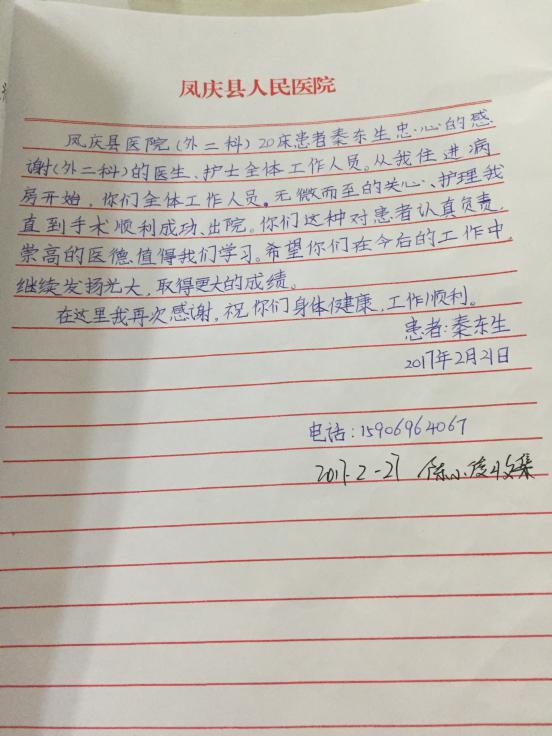 凤庆县人民医院
凤庆县医院(外二科)20床患者秦东生忠心的感
谢(外二科)的医生、护士全体工作人员。从我住进病
房开始,你们全体工作人员。无微而至的关心、护理我
直到手术顺利成功、出院。你们这种对患者认真负责,
崇高的医德.值得我们学习。希望你们在今后的工作中,
继续发扬光大,取得更大的成绩。
在这里我再次感谢,祝你们身体健康,工作顺利。
患者:秦东生
2017年2月21日
电话:15906964067
2017-2-27 陈小凌收集